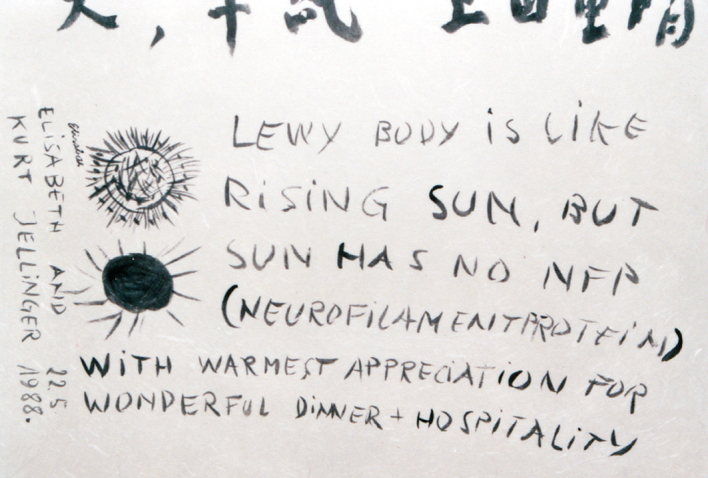 LEWY BODY iS LiKE
RiSiNG SUN, BUT
SUN HAS NO NFP
(NEUROFiLAMENTPROTEiN)
WiTH WARMEST APPRECiATiON FOR
WONDERFUL DiNNER + HOSPiTALiTY
ELiSABETH AND 22 5
KURT JELLiNGER 1988.
Elisabeth